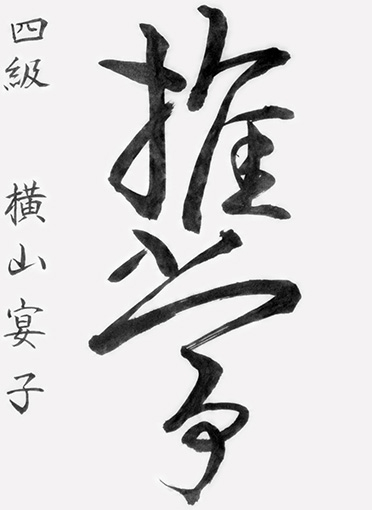 推挙
四級 横山宴子